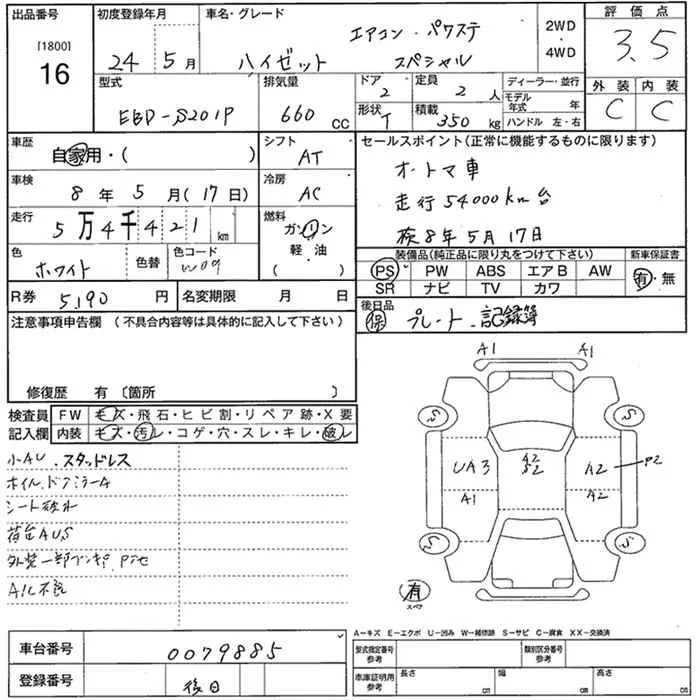 出品番号 初度登録年月 車名・グレード エアコン・パワステ 2WD 評価点
[1800] 16 24年 5月 ハイゼット スペシャル 4WD 3.5
型式 排気量 ドア 2 定員 2人 ディーラー・並行 外装 内装
EBD-S201P 660 CC 形状 T 積載 350kg モデル年式 年 C C
ハンドル 左・右
車歴 自家用・( ) シフト AT セールスポイント(正常に機能するものに限ります)
オートマ車
車検 8年 5月(17日) 冷房 AC 走行54000km台
走行 5万4千421km 燃料 ガソリン 検8年5月17日
軽油
( )
色 ホワイト 色替 色コード W09 装備品(純正品に限り丸をつけて下さい) 新車保証書
PS PW ABS エアB AW 有・無
SR ナビ TV カワ
R券 5,190円 名変期限 月 日 後日品
保 プレート. 記録簿
注意事項申告欄 (不具合内容等は具体的に記入して下さい)
修復歴 有 〔箇所 〕
検査員記入欄 FW キズ・飛石・ヒビ割・リペア跡・X要
内装 キズ・汚レ・コゲ・穴・スレ・キレ・破レ
小AU .スタッドレス
ホイル.ドアミラーA
シート破れ
荷台AUS
外装一部
A/L不良
A1 A1
S S
UA3 A2 S2 A2 P2
A1 A2
S S
有
スペア
A−キズ E−エクボ U−凹み W−補修跡 S−サビ C−腐食 XX−交換済
車台番号 0079885 型式指定番号 参考 類別区分番号 参考
登録番号 後日 車庫証明用 参考 長さ cm 幅 cm 高さ cm